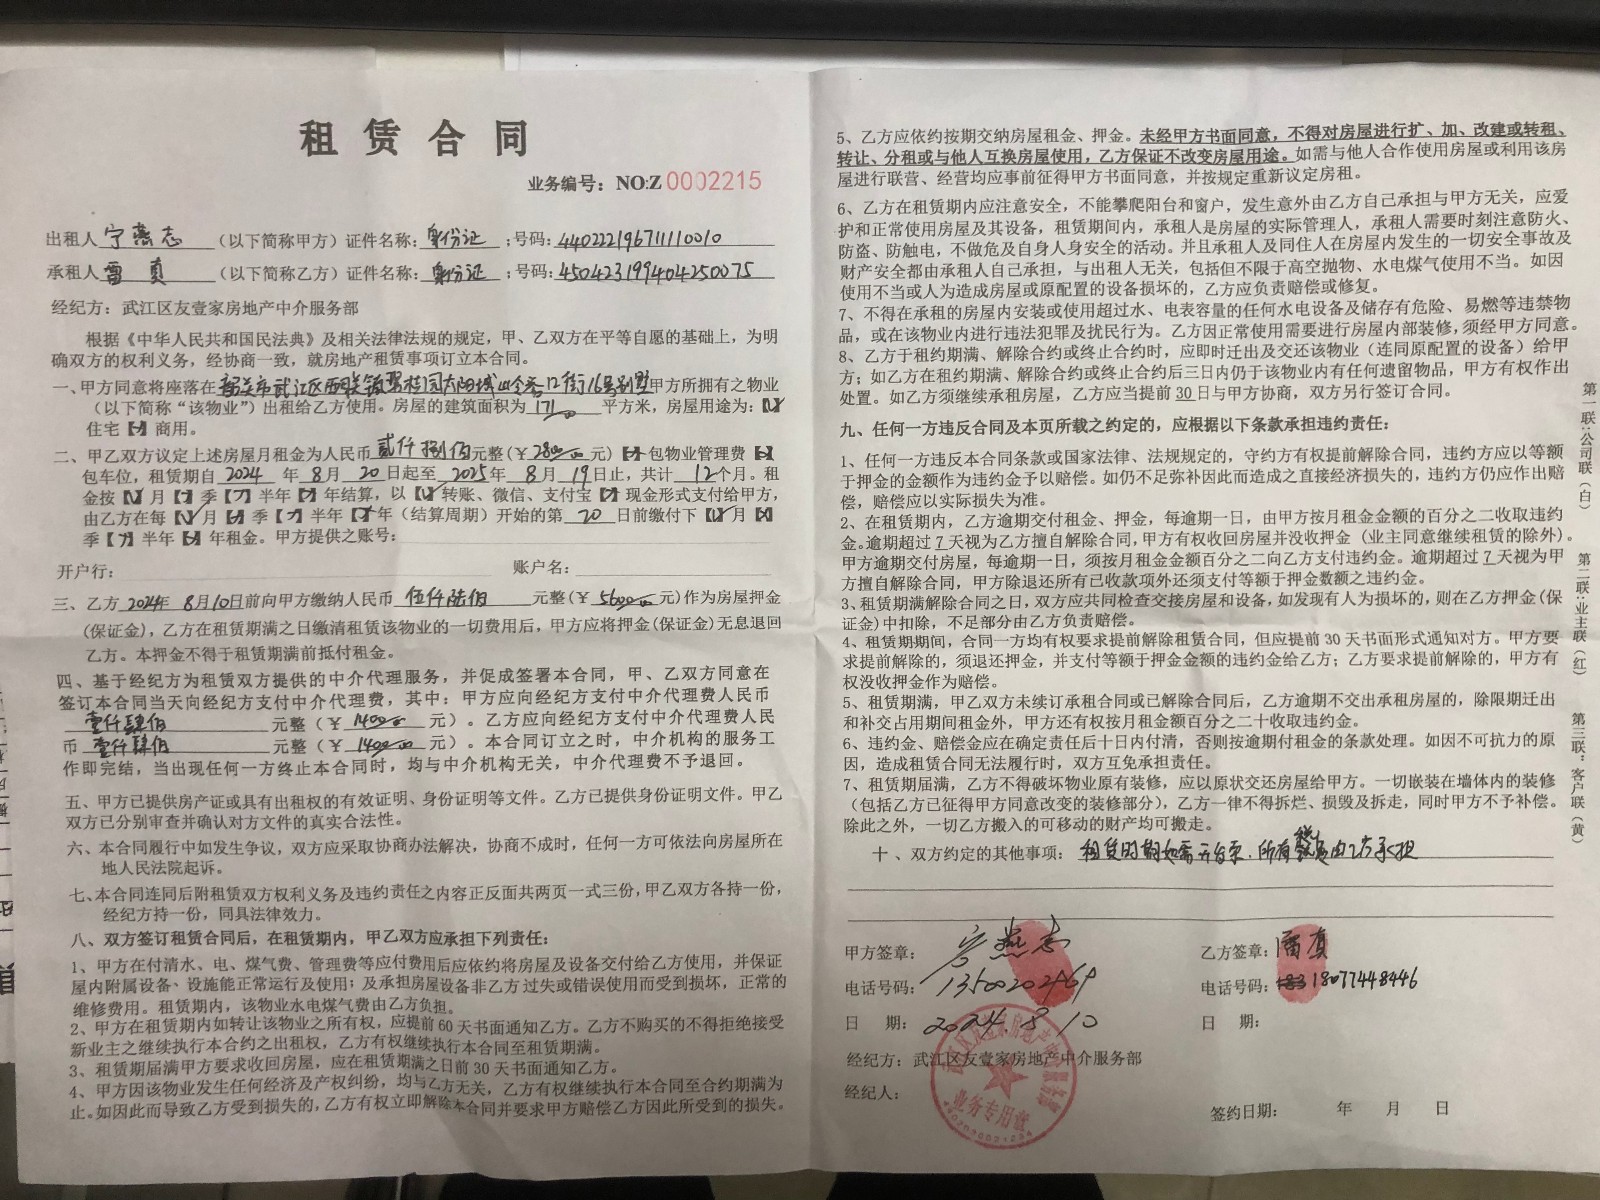 租赁合同
业务编号：NO:Z 0002215
出租人 宁燕志 （以下简称甲方）证件名称：身份证；号码：440222196711110010
承租人 雷真 （以下简称乙方）证件名称：身份证；号码：450423199404250075
经纪方：武江区友壹家房地产中介服务部
根据《中华人民共和国民法典》及相关法律法规的规定，甲、乙双方在平等自愿的基础上，为明
确双方的权利义务，经协商一致，就房地产租赁事项订立本合同。
一、甲方同意将座落在韶关市武江区西联镇 太阳城 街16号别墅甲方所拥有之物业
（以下简称“该物业”）出租给乙方使用。房屋的建筑面积为 171 平方米，房屋用途为：【√】
住宅【×】商用。
二、甲乙双方议定上述房屋月租金为人民币 贰仟捌佰 元整（￥2800 元）【×】包物业管理费【×】
包车位，租赁期自 2024 年 8 月 20 日起至 2025 年 8 月 19 日止，共计 12 个月。租
金按【√】月【×】季【×】半年【×】年结算，以【√】转账、微信、支付宝【×】现金形式支付给甲方，
由乙方在每【√】月【×】季【×】半年【×】年（结算周期）开始的第 20 日前缴付下【√】月【×】
季【×】半年【×】年租金。甲方提供之账号：
开户行： 账户名：
三、乙方 2024年 8月10日前向甲方缴纳人民币 伍仟陆佰 元整（￥5600 元）作为房屋押金
（保证金），乙方在租赁期满之日缴清租赁该物业的一切费用后，甲方应将押金（保证金）无息退回
乙方。本押金不得于租赁期满前抵付租金。
四、基于经纪方为租赁双方提供的中介代理服务，并促成签署本合同，甲、乙双方同意在
签订本合同当天向经纪方支付中介代理费，其中：甲方应向经纪方支付中介代理费人民币
壹仟肆佰 元整（￥1400 元）。乙方应向经纪方支付中介代理费人民
币 壹仟肆佰 元整（￥1400 元）。本合同订立之时，中介机构的服务工
作即完结，当出现任何一方终止本合同时，均与中介机构无关，中介代理费不予退回。
五、甲方已提供房产证或具有出租权的有效证明、身份证明等文件。乙方已提供身份证明文件。甲乙
双方已分别审查并确认对方文件的真实合法性。
六、本合同履行中如发生争议，双方应采取协商办法解决，协商不成时，任何一方可依法向房屋所在
地人民法院起诉。
七、本合同连同后附租赁双方权利义务及违约责任之内容正反面共两页一式三份，甲乙双方各持一份，
经纪方持一份，同具法律效力。
八、双方签订租赁合同后，在租赁期内，甲乙双方应承担下列责任：
1、甲方在付清水、电、煤气费、管理费等应付费用后应依约将房屋及设备交付给乙方使用，并保证
屋内附属设备、设施能正常运行及使用；及承担房屋设备非乙方过失或错误使用而受到损坏，正常的
维修费用。租赁期内，该物业水电煤气费由乙方负担。
2、甲方在租赁期内如转让该物业之所有权，应提前60天书面通知乙方。乙方不购买的不得拒绝接受
新业主之继续执行本合约之出租权，乙方有权继续执行本合同至租赁期满。
3、租赁期届满甲方要求收回房屋，应在租赁期满之日前30天书面通知乙方。
4、甲方因该物业发生任何经济及产权纠纷，均与乙方无关，乙方有权继续执行本合同至合约期满为
止。如因此而导致乙方受到损失的，乙方有权立即解除本合同并要求甲方赔偿乙方因此所受到的损失。
5、乙方应依约按期交纳房屋租金、押金。未经甲方书面同意，不得对房屋进行扩、加、改建或转租、
转让、分租或与他人互换房屋使用，乙方保证不改变房屋用途。如需与他人合作使用房屋或利用该房
屋进行联营、经营均应事前征得甲方书面同意，并按规定重新议定房租。
6、乙方在租赁期内应注意安全，不能攀爬阳台和窗户，发生意外由乙方自己承担与甲方无关，应爱
护和正常使用房屋及其设备，租赁期间内，承租人是房屋的实际管理人，承租人需要时刻注意防火、
防盗、防触电，不做危及自身人身安全的活动。并且承租人及同住人在房屋内发生的一切安全事故及
财产安全都由承租人自己承担，与出租人无关，包括但不限于高空抛物、水电煤气使用不当。如因
使用不当或人为造成房屋或原配置的设备损坏的，乙方应负责赔偿或修复。
7、不得在承租的房屋内安装或使用超过水、电表容量的任何水电设备及储存有危险、易燃等违禁物
品，或在该物业内进行违法犯罪及扰民行为。乙方因正常使用需要进行房屋内部装修，须经甲方同意。
8、乙方于租约期满、解除合约或终止合约时，应即时迁出及交还该物业（连同原配置的设备）给甲
方；如乙方在租约期满、解除合约或终止合约后三日内仍于该物业内有任何遗留物品，甲方有权作出
处置。如乙方须继续承租房屋，乙方应当提前30日与甲方协商，双方另行签订合同。
九、任何一方违反合同及本页所载之约定的，应根据以下条款承担违约责任：
1、任何一方违反本合同条款或国家法律、法规规定的，守约方有权提前解除合同，违约方应以等额
于押金的金额作为违约金予以赔偿。如仍不足弥补因此而造成之直接经济损失的，违约方仍应作出赔
偿，赔偿应以实际损失为准。
2、在租赁期内，乙方逾期交付租金、押金，每逾期一日，由甲方按月租金金额的百分之二收取违约
金。逾期超过7天视为乙方擅自解除合同，甲方有权收回房屋并没收押金（业主同意继续租赁的除外）。
甲方逾期交付房屋，每逾期一日，须按月租金金额百分之二向乙方支付违约金。逾期超过7天视为甲
方擅自解除合同，甲方除退还所有已收款项外还须支付等额于押金数额之违约金。
3、租赁期满解除合同之日，双方应共同检查交接房屋和设备，如发现有人为损坏的，则在乙方押金（保
证金）中扣除，不足部分由乙方负责赔偿。
4、租赁期期间，合同一方均有权要求提前解除租赁合同，但应提前30天书面形式通知对方。甲方要
求提前解除的，须退还押金，并支付等额于押金金额的违约金给乙方；乙方要求提前解除的，甲方有
权没收押金作为赔偿。
5、租赁期满，甲乙双方未续订承租合同或已解除合同后，乙方逾期不交出承租房屋的，除限期迁出
和补交占用期间租金外，甲方还有权按月租金额百分之二十收取违约金。
6、违约金、赔偿金应在确定责任后十日内付清，否则按逾期付租金的条款处理。如因不可抗力的原
因，造成租赁合同无法履行时，双方互免承担责任。
7、租赁期届满，乙方不得破坏物业原有装修，应以原状交还房屋给甲方。一切嵌装在墙体内的装修
（包括乙方已征得甲方同意改变的装修部分），乙方一律不得拆烂、损毁及拆走，同时甲方不予补偿。
除此之外，一切乙方搬入的可移动的财产均可搬走。
十、双方约定的其他事项：租赁时期如需开台票，所有税费由乙方承担
甲方签章：宁燕志 乙方签章：雷真
电话号码：13500202469 电话号码：18077448446
日 期：2024.8.10 日 期：
经纪方：武江区友壹家房地产中介服务部
经纪人：
签约日期： 年 月 日
业务专用章
第一联：公司联（白）
第二联：业主联（红）
第三联：客户联（黄）